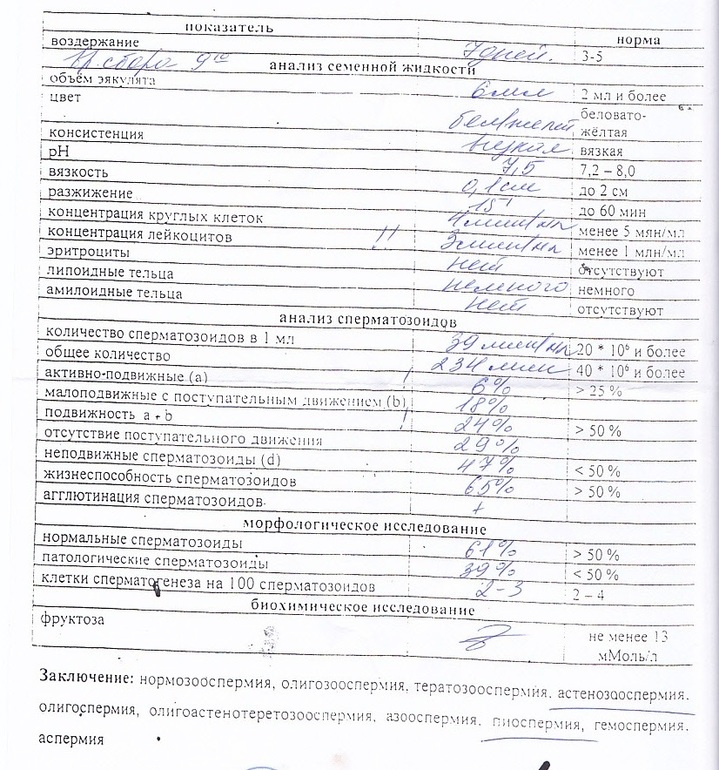 показатель норма
воздержание 7 дней. 3-5
Вр. сбора 9⁰⁰ анализ семенной жидкости
объём эякулята 6 мл 2 мл и более
цвет бел/желт беловато-
жёлтая
консистенция вязкая вязкая
pH 7,5 7,2 – 8,0
вязкость 0,1 см до 2 см
разжижение 15' до 60 мин
концентрация круглых клеток 4 млн/мл менее 5 мян/мл
концентрация лейкоцитов !! 3 млн/мл менее 1 млн/мл
эритроциты нет отсутствуют
липоидные тельца немного немного
амилоидные тельца нет отсутствуют
анализ сперматозоидов
количество сперматозоидов в 1 мл 39 млн/мл 20 * 10⁶ и более
общее количество 234 млн 40 * 10⁶ и более
активно-подвижные (a) ! 6% > 25 %
малоподвижные с поступательным движением (b) 18%
подвижность a + b ! 24% > 50 %
отсутствие поступательного движения 29%
неподвижные сперматозоиды (d) 47% < 50 %
жизнеспособность сперматозоидов 65% > 50 %
агглютинация сперматозоидов +
морфологическое исследование
нормальные сперматозоиды 61% > 50 %
патологические сперматозоиды 39% < 50 %
клетки сперматогенеза на 100 сперматозоидов 2-3 2 – 4
биохимическое исследование
фруктоза не менее 13
мМоль/л
Заключение: нормозооспермия, олигозооспермия, тератозооспермия, астенозооспермия,
олигоспермия, олигоастенотеретозооспермия, азооспермия, пиоспермия, гемоспермия,
аспермия